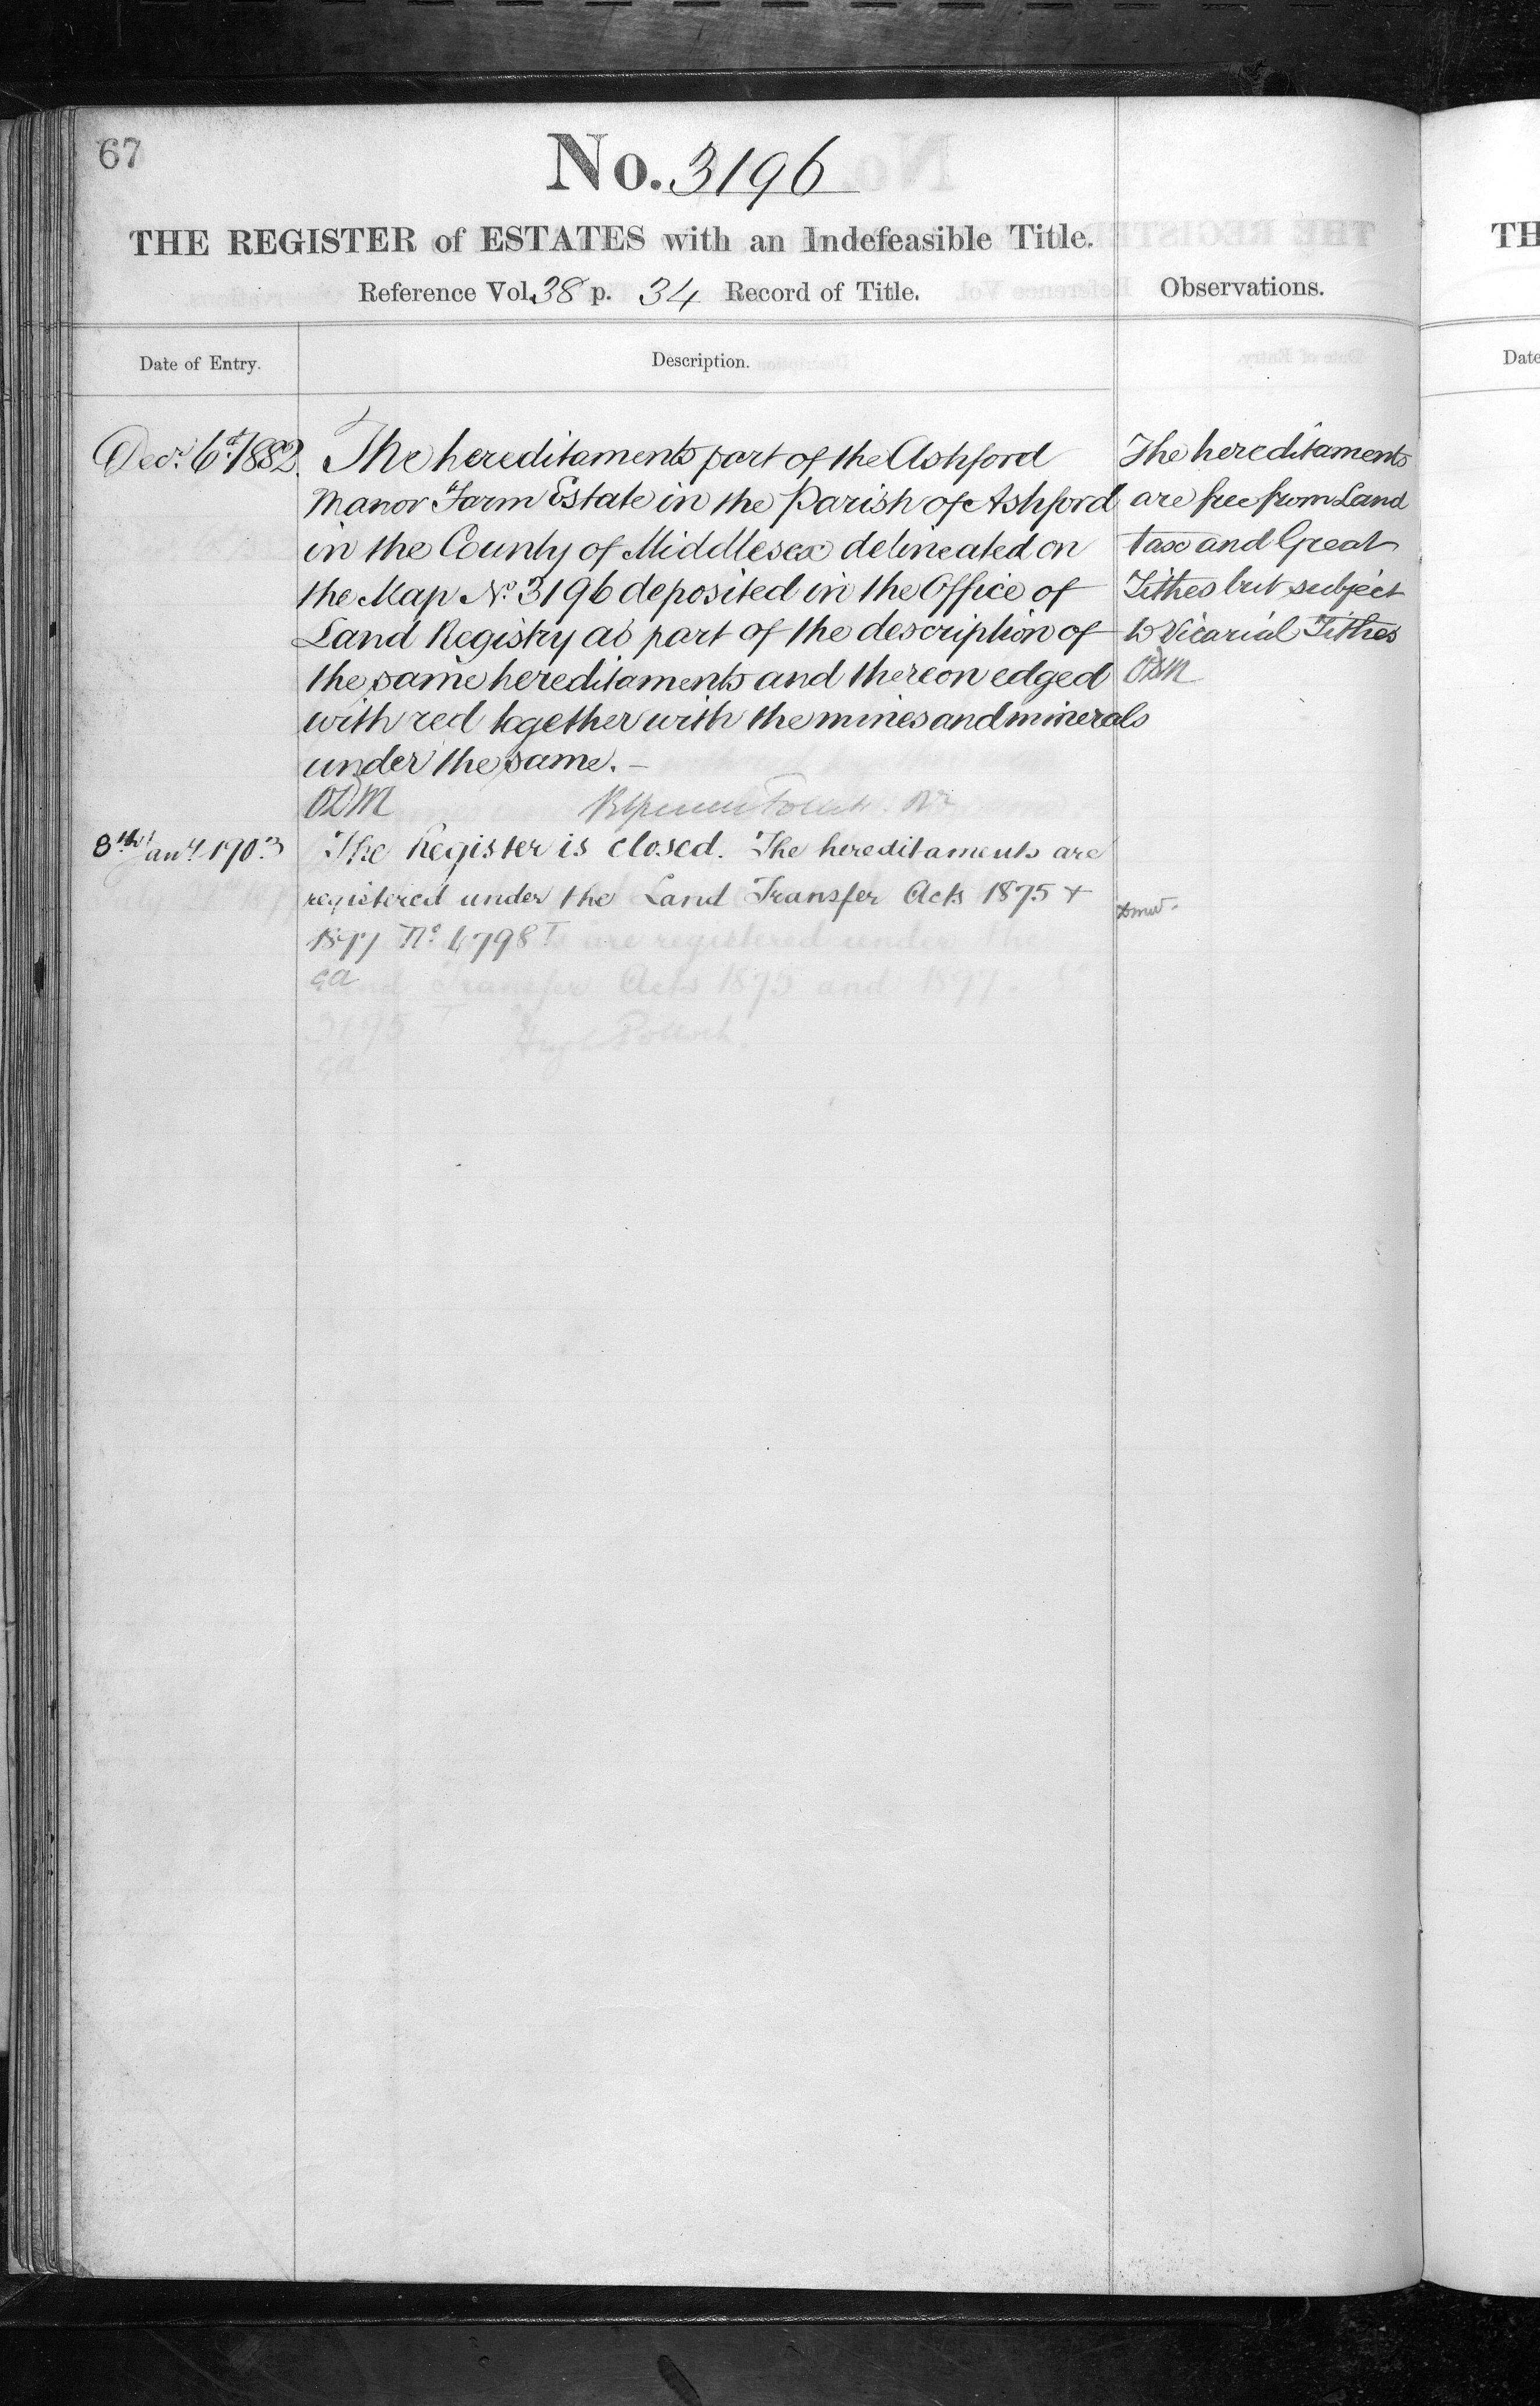 67
No. 3196
THE REGISTER of ESTATES with an Indefeasible Title.
Reference Vol. 38 p. 34 Record of Title.
Observations.
Date of Entry.
Description.
Decr. 6th 1882.
The hereditaments part of the Ashford
Manor Farm Estate in the Parish of Ashford
in the County of Middlesex delineated on
the Map No. 3196 deposited in the Office of
Land Registry as part of the description of
the same hereditaments and thereon edged
with red together with the mines and minerals
under the same. –
The hereditaments
are free from Land
tax and Great
Tithes but subject
to Vicarial Tithes
8th Jany 1903
The Register is closed. The hereditaments are
registered under the Land Transfer Acts 1875 +
No
TH
Date